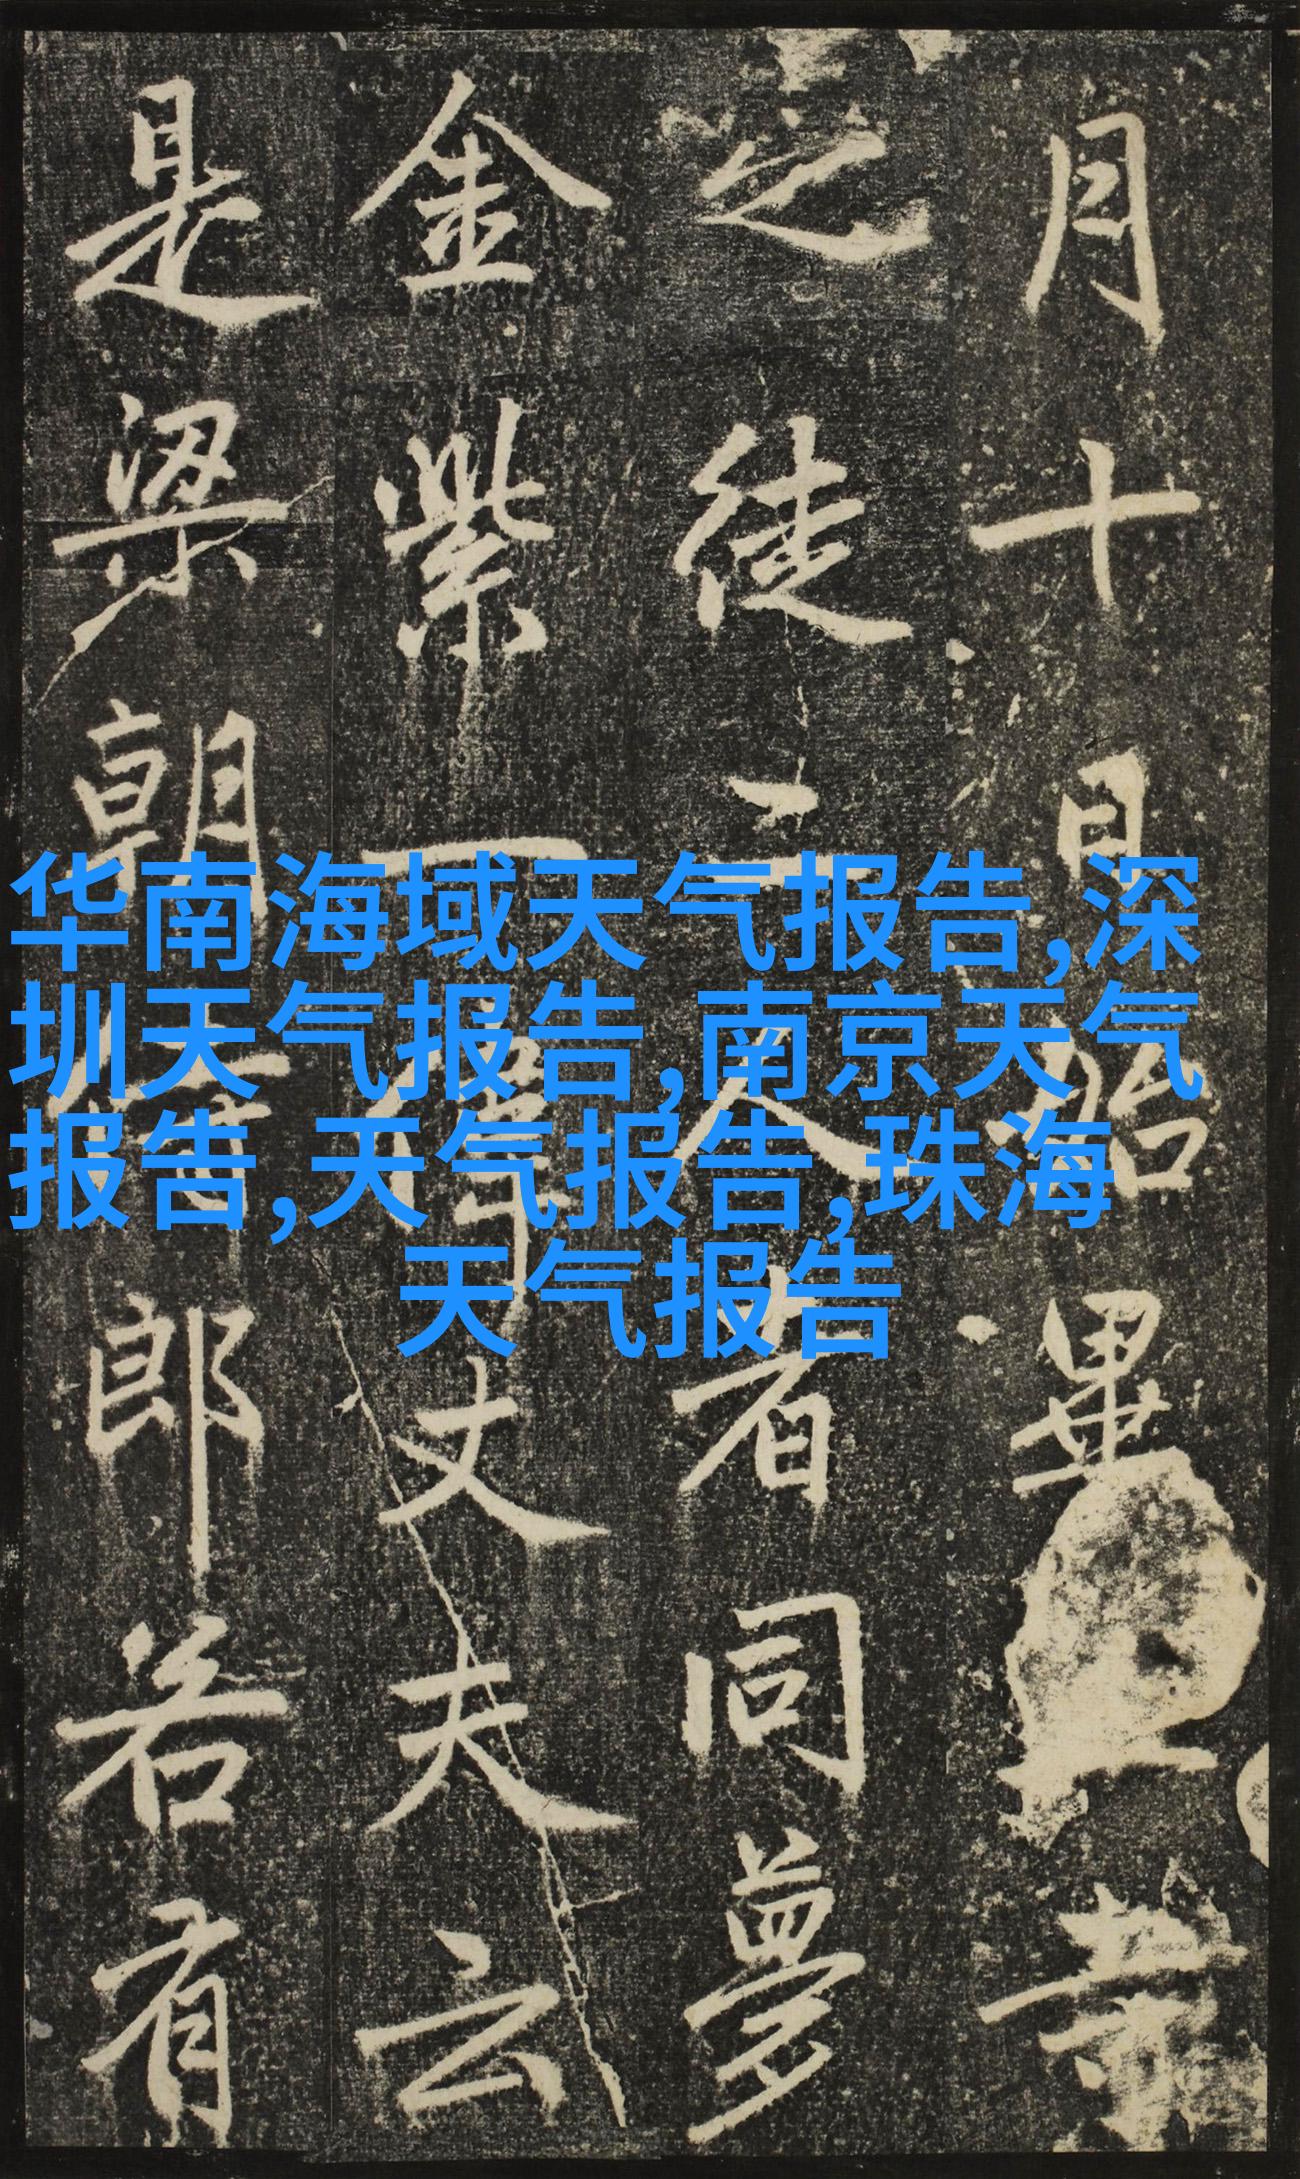 月十日始畢
之徒二人者同夢
金紫一偉丈夫云
是梁朝侍郎若有
华南海域天气报告,深
圳天气报告,南京天气
报告,天气报告,珠海
天气报告